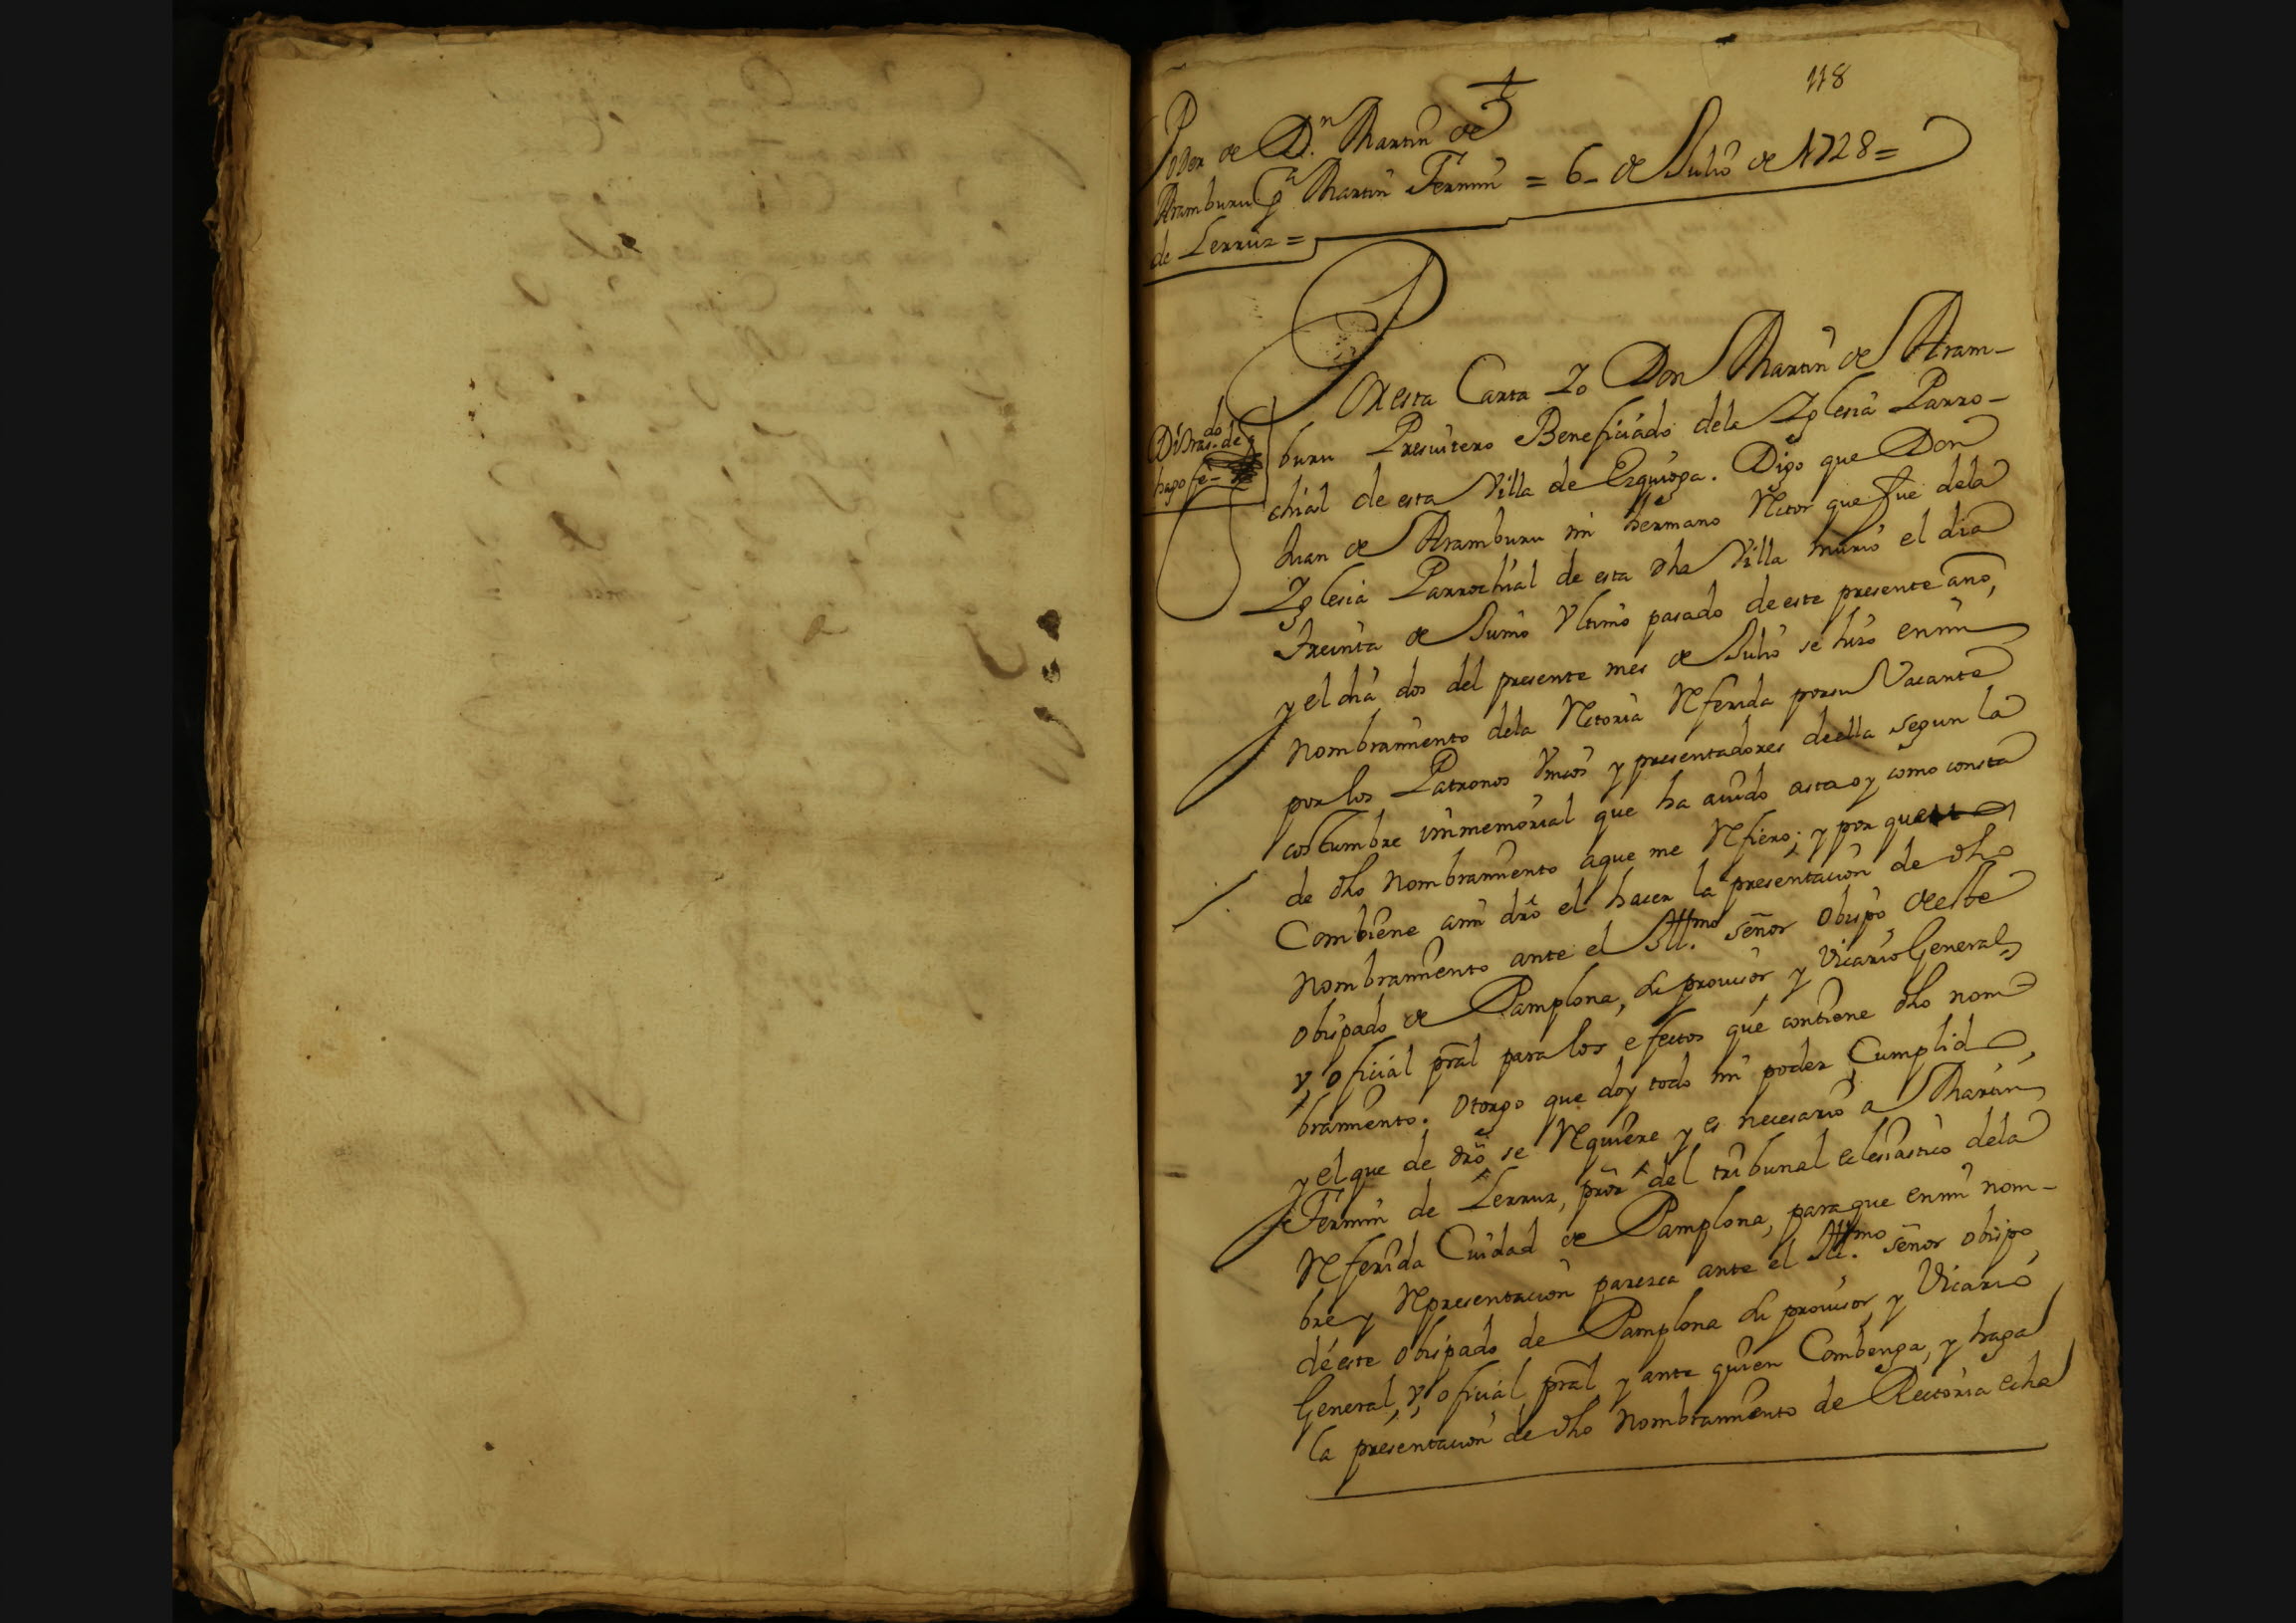 118
Poder de Dn. Martin de
Aramburu pa Martin Fermin = 6 - de Julio de 1728 =
de Lerruz =
Por esta Carta Yo Don Martin de Aram-
buru Presuitero Beneficiado dela Yglesia Parro-
chial de esta Villa de Ezquioga. Digo que Don
Juan de Aramburu mi hermano Retor que fue dela
Yglesia Parrochial de esta dha Villa murio el dia
treinta de Junio Vltimo pasado de este presente año,
y el dia dos del presente mes de Julio se hizo en mi
nombramiento dela Retoria Referida por su Vacante
por los Patronos Vnicos y presentadores de ella segun la
costumbre inmemorial que ha auido asta oy como consta
de dho nombramiento aque me Refiero; y por que
Combiene ami dro el hacer la presentacion de dho
nombramiento ante el Illmo. señor obispo de este
obispado de Pamplona, su prouisor y Vicario General,
y oficial pral para los efectos que contiene dho nom-
bramiento. Otorgo que doy todo mi poder Cumplido,
y el que de dro se Requiere y es necesario a Martin
Fermin de Lerruz, pror del tribunal eclesiastico dela
Referida Ciudad de Pamplona, para que en mi nom-
bre y Representacion paresca ante el Illmo. señor obispo
de este obispado de Pamplona su prouisor y Vicario
General, y oficial pral y ante quien Combenga, y haga
la presentacion de dho nombramiento de Rectoria echa
do
hago fe -